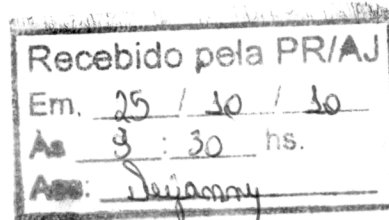 Recebido pela PR/AJ
Em, 25 / 10 / 10
Às 9 : 30 hs.
Ass: